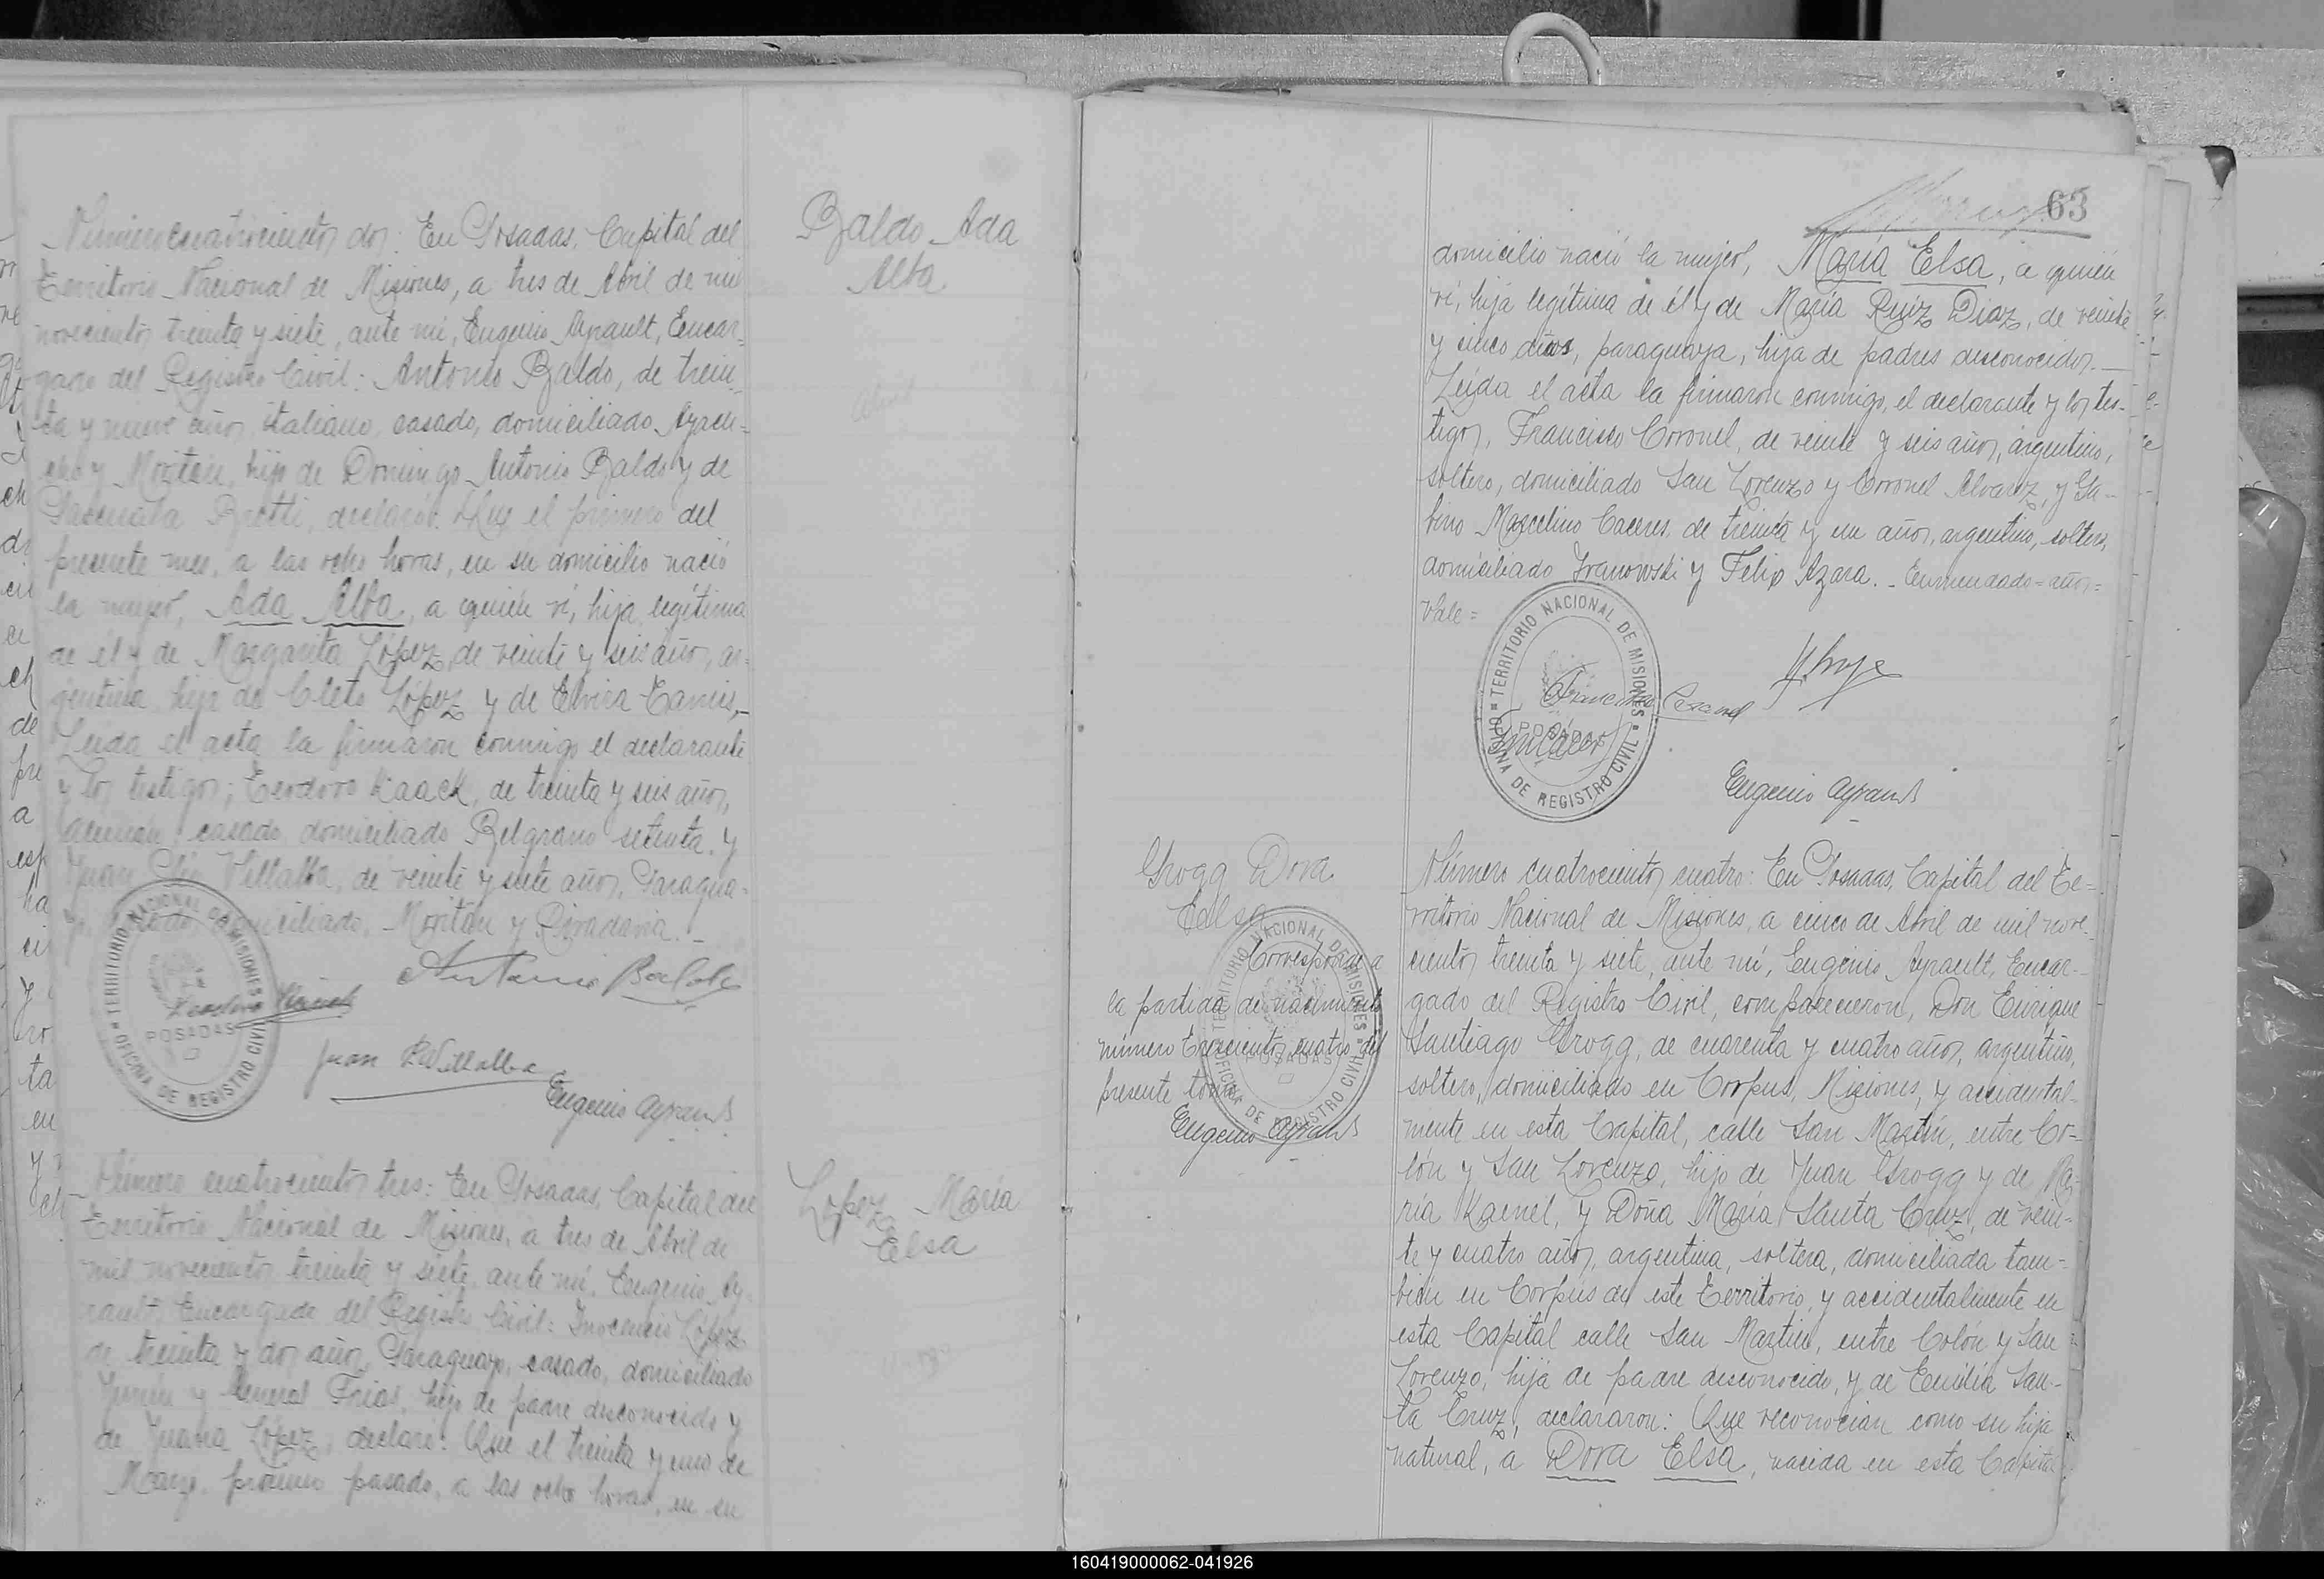 Número cuatrocientos dos: En Posadas, Capital del
Territorio Nacional de Misiones, a tres de Abril de mil
novecientos treinta y siete, ante mí, Eugenio Ayrault, Encar-
gado del Registro Civil: Antonio Baldo, de trein-
ta y nueve años, italiano, casado, domiciliado Ayacu-
cho y Moritán, hijo de Domingo Antonio Baldo y de
declaró: Que el primero del
presente mes, a las ocho horas, en su domicilio nació
la mujer, Ada Alba, a quién ví, hija legítima
de él y de Margarita López, de veinte y seis años, ar-
gentina, hija de Cleto López y de Elvira
Leída el acta la firmaron conmigo el declarante
y los testigos; Teodoro Kaack, de treinta y seis años,
alemán, casado, domiciliado Belgrano setenta, y
Juan Villalba, de veinte y siete años, Paragua-
domiciliado, Moritán y Rivadavia.-
Baldo Ada
Alba
Abril
TERRITORIO NACIONAL DE MISIONES
POSADAS
OFICINA DE REGISTRO CIVIL
Antonio Baldo
Teodoro Kaack
Juan Villalba
Eugenio Ayrault
Número cuatrocientos tres: En Posadas, Capital del
Territorio Nacional de Misiones, a tres de Abril de
mil novecientos treinta y siete, ante mí, Eugenio Ay-
rault, Encargado del Registro Civil: Inocencio López
de treinta y dos años, Paraguayo, casado, domiciliado
Junín y General Frias, hijo de padre desconocido y
de Juana López, declaró: Que el treinta y uno de
Marzo, próximo pasado, a las ocho horas, en su
Lopez María
Elsa
Marzo
63
domicilio nació la mujer, María Elsa, a quién
ví, hija legítima de él y de María Ruiz Diaz, de veinte
y cinco años, paraguaya, hija de padres desconocidos.—
Leída el acta la firmaron conmigo, el declarante y los tes-
tigos, Francisco Coronel, de veinte y seis años, argentino,
soltero, domiciliado San Lorenzo y Coronel Alvarez, y Ga-
bino Marcelino Caceres, de treinta y un años, argentino, soltero,
domiciliado Iranowski y Felix Azara.- Enmendado=años=
Vale=
TERRITORIO NACIONAL DE MISIONES
POSADAS
OFICINA DE REGISTRO CIVIL
Francisco Coronel
Eugenio Ayrault
Grogg Dora
Elsa
Corresponde a
la partida de nacimiento
número trescientos cuatro del
presente tomo.
Eugenio Ayrault
TERRITORIO NACIONAL DE MISIONES
POSADAS
OFICINA DE REGISTRO CIVIL
Número cuatrocientos cuatro: En Posadas, Capital del Te-
rritorio Nacional de Misiones, a cinco de Abril de mil nove-
cientos treinta y siete, ante mí, Eugenio Ayrault, Encar-
gado del Registro Civil, comparecieron, Don Enrique
Santiago Grogg, de cuarenta y cuatro años, argentino,
soltero, domiciliado en Corpus, Misiones, y accidental-
mente en esta Capital, calle San Martín, entre Co-
lón y San Lorenzo, hijo de Juan Grogg y de Ma-
ría Kaenel, y Doña María Santa Cruz, de vein-
te y cuatro años, argentina, soltera, domiciliada tam-
bién en Corpus de este Territorio, y accidentalmente en
esta Capital calle San Martín, entre Colón y San
Lorenzo, hija de padre desconocido, y de Emilia San-
ta Cruz, declararon: Que reconocian como su hija
natural, a Dora Elsa, nacida en esta Capital
160419000062-041926